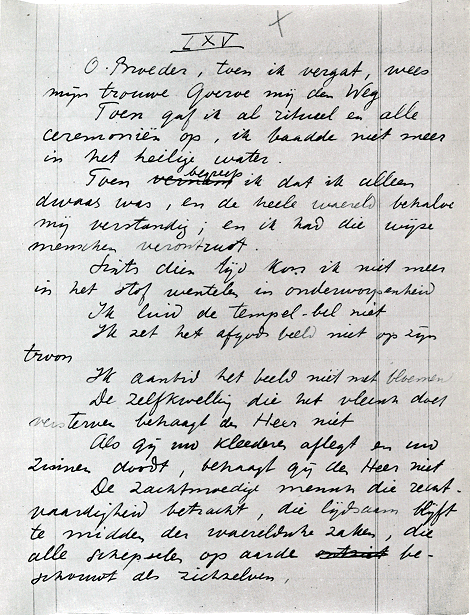 LXV
O Broeder, toen ik vergat, wees
mijn trouwe Goeroe mij den Weg
Toen gaf ik al ritueel en alle
ceremoniën op, ik baadde niet meer
in het heilige water.
Toen begreep ik dat ik alleen
dwaas was, en de heele waereld behalve
mij verstandig; en ik had die wijze
menschen verontrust.
Sints dien tijd kon ik niet meer
in het stof wentelen in onderworpenheid
Ik luid de tempel-bel niet
Ik zet het afgodsbeeld niet op zijn
troon
Ik aanbid het beeld niet met bloemen
De zelfkwelling die het vleesch doet
versterven behaagt den Heer niet
Als gij uw kleederen aflegt en uw
zinnen doodt, behaagt gij den Heer niet
De zachtmoedige mensch die recht-
vaardigheid betracht, die lijdzaam blijft
te midden der waereldsche zaken, die
alle schepselen op aarde be-
schouwt als zichzelven,